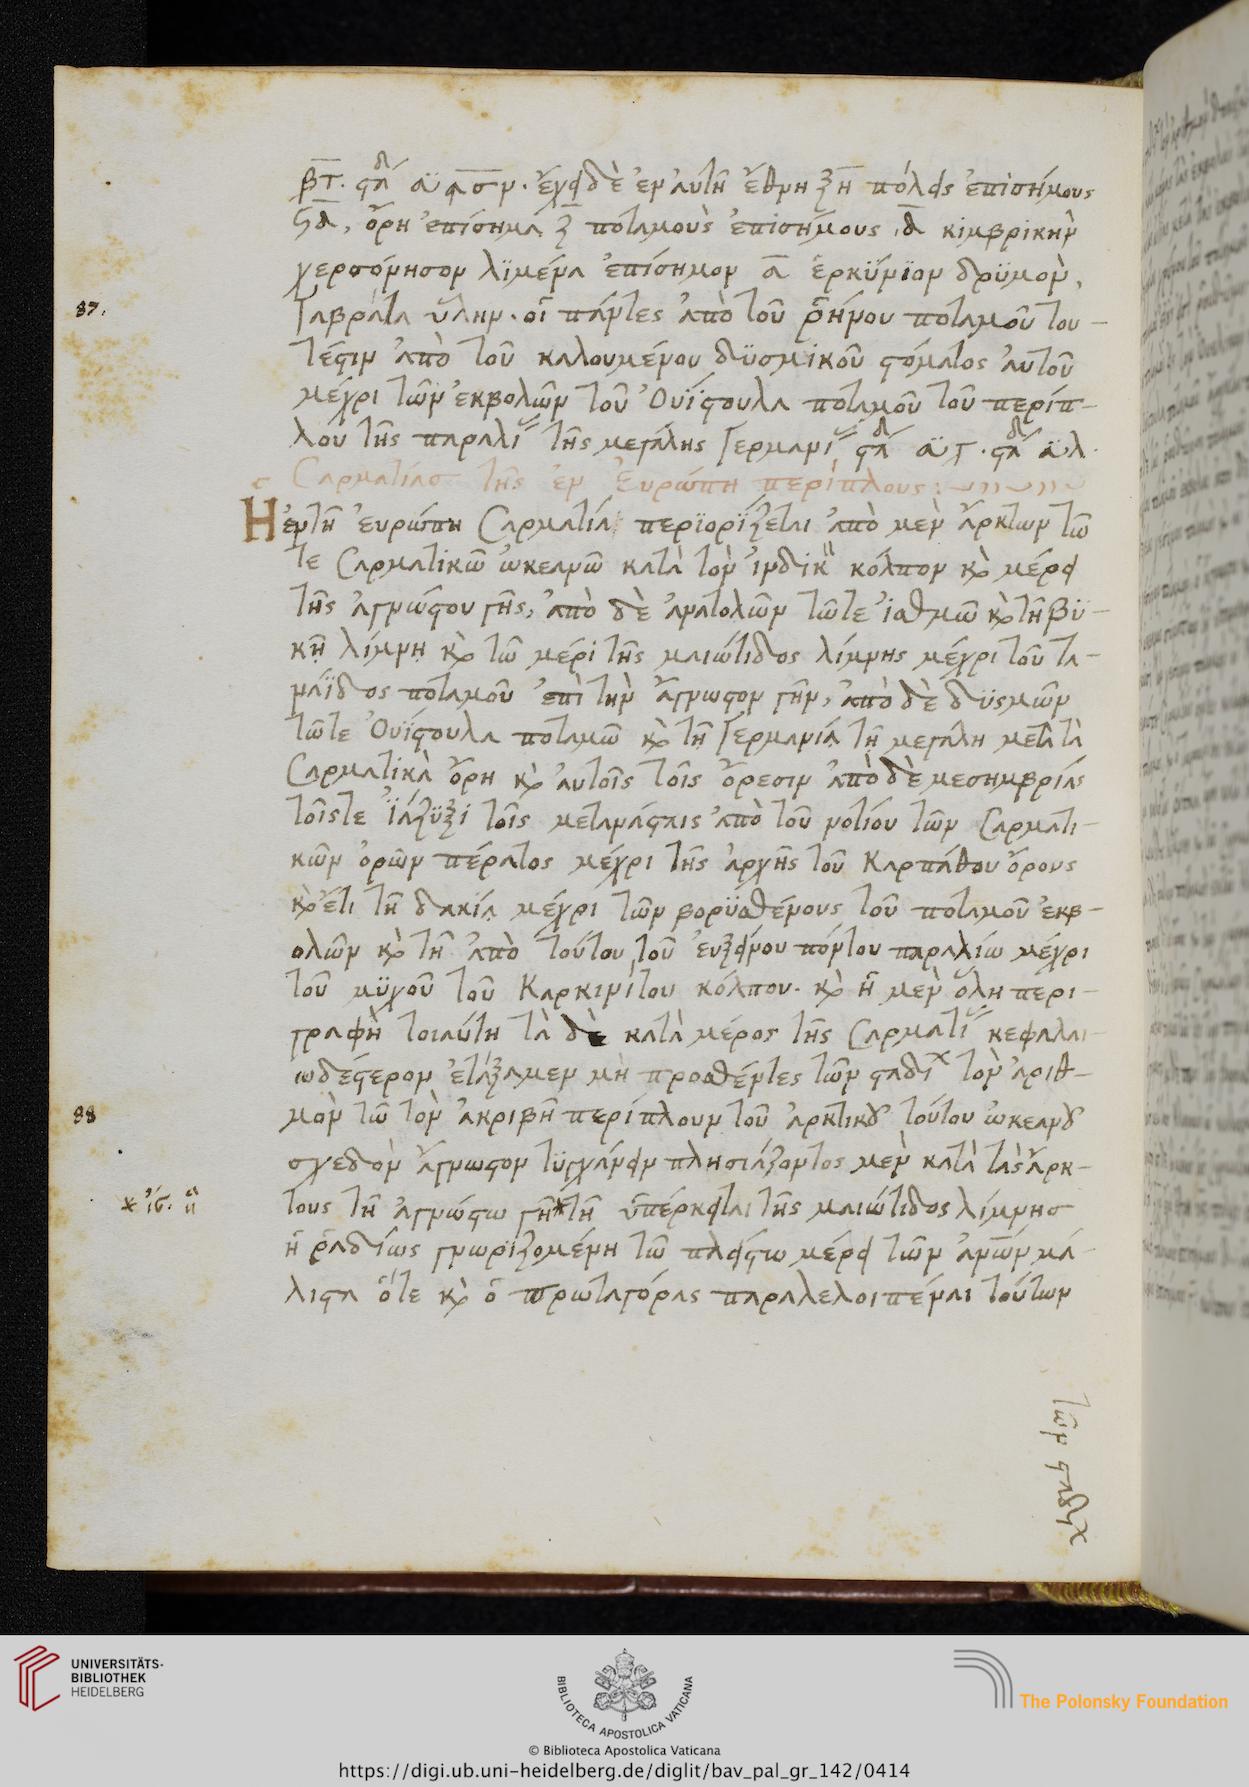 βτ. στά αϋ ασν. ἔχει δὲ ἐν αὐτῆ ἔθνη ξη πόλεις ἐπισήμους
ϟδ, ὄρη ἐπίσημα ζ ποταμοὺς ἐπισήμους ιδ κιμβρικὴν
χερσόνησον λϊμένα ἐπίσημον α ἑρκύνϊον δρϋμὸν,
Γαβρᾶτα ὕλην. οἱ πάντες ἀπὸ τοῦ ῥήνου ποταμοῦ του-
τέστιν ἀπὸ τοῦ καλουμένου δϋσμικοῦ στόματος αὐτοῦ
μέχρι τῶν ἐκβολῶν τοῦ Οὐϊστουλα ποταμοῦ τοῦ περίπ-
λου τῆς παραλί τῆς μεγάλης Γερμανί στά αϋ γ. στά αϋ λ.
Σαρματίασ τῆς ἐν Εὐρώπη περίπλους:
Ἡ ἐν τῆ εὐρώπη Σαρματία περϊορίζεται ἀπὸ μὲν ἄρκτων τῶ
τε Σαρματικῶ ὠκεανῶ κατὰ τὸν ἰνδικ κόλπον κὰι μέρει
τῆς ἀγνώστου γῆς, ἀπὸ δὲ ἀνατολῶν τῶτε ἰσθμῶ κὰι τῆ βϋ-
κῃ λίμνῃ κὰι τῶ μέρει τῆς μαιώτιδος λίμνης μέχρι τοῦ τα-
νάϊδος ποταμοῦ ἐπὶ τὴν ἄγνωστον γῆν, ἀπὸ δὲ δϋσμῶν
τῶτε Οὐϊστουλα ποταμῶ κὰι τῆ Γερμανία τῆ μεγάλη μετὰ τὰ
Σαρματικὰ ὄρη κὰι αὐτοῖς τοῖς ὄρεσιν ἀπὸ δὲ μεσημβρίας
τοῖστε Ἰάζϋξι τοῖς μετανάσταις ἀπὸ τοῦ νοτίου τῶν Σαρματι-
κῶν ὀρῶν πέρατος μέχρι τῆς ἀρχῆς τοῦ Καρπάθου ὄρους
κὰι ἔτι τῆ δακία μέχρι τῶν βορϋσθένους τοῦ ποταμοῦ ἐκβ-
ολῶν κὰι τῆ ἀπὸ τούτου τοῦ εὐξείνου πόντου παραλίω μέχρι
τοῦ μϋχοῦ τοῦ Καρκινίτου κόλπου. κὰι ἡ μὲν ὅλη περι-
γραφὴ τοιαύτη τὰ δὲ κατὰ μέρος τῆς Σαρματί κεφαλαι-
ωδέστερον ἐτάξαμεν μὴ προσθέντες τῶν σταδί τὸν ἀριθ-
μὸν τῶ τὸν ἀκριβῆ περίπλουν τοῦ ἀρκτικοῦ τούτου ὠκεανοῦ
σχεδὸν ἄγνωστον τϋγχάνειν πλησιάζοντος μὲν κατὰ τὰς ἄρκ-
τους τῆ ἀγνώστω γῆ τῆ ὑπέρκειται τῆς μαιώτιδος λίμνησ
ἡ ῥαδίως γνωριζομένη τῶ πλείστω μέρει τῶν ἀνων μά-
λιστα ὅτε κὰι ὁ πρωταγόρας παραλελοιπέναι τούτων
τῶν σταδί
87.
88
UNIVERSITÄTS-
BIBLIOTHEK
HEIDELBERG
BIBLIOTECA APOSTOLICA VATICANA
© Biblioteca Apostolica Vaticana
The Polonsky Foundation
https://digi.ub.uni-heidelberg.de/diglit/bav_pal_gr_142/0414